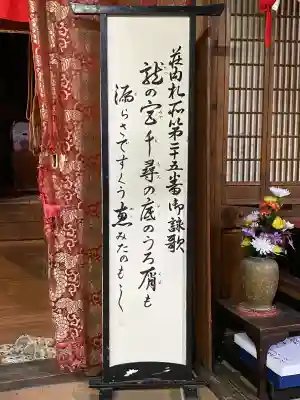 荘内札所第二十五番御詠歌
龍の宮千尋の底のうろ屑も
漏らさですくう恵みたのもし